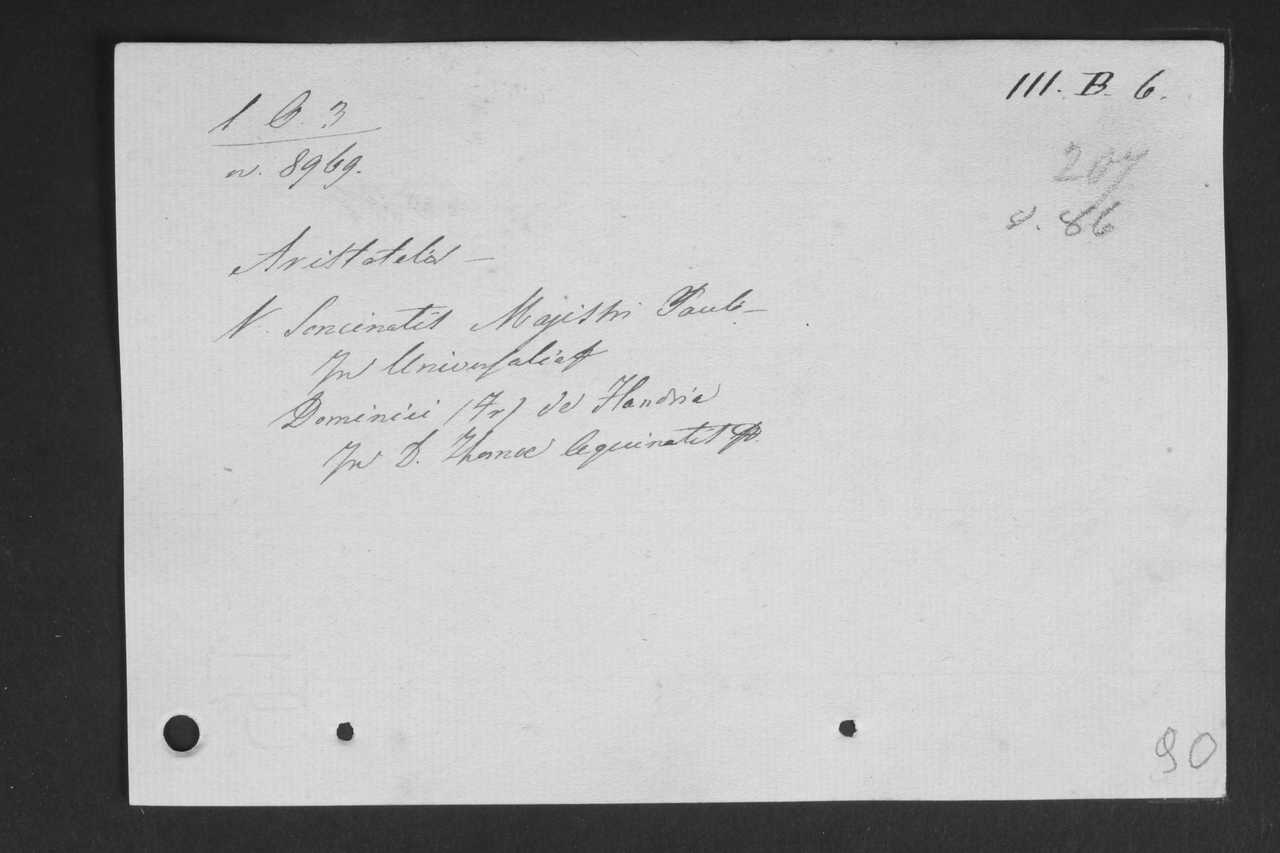 1 B. 3
n. 8969.
III. B. 6.
207
s. 86
Aristotelis —
V. Soncinatis Magistri Pauli —
In Universalia
Dominici (Fr) de Flandria
In D. Thomae Aquinatis
90